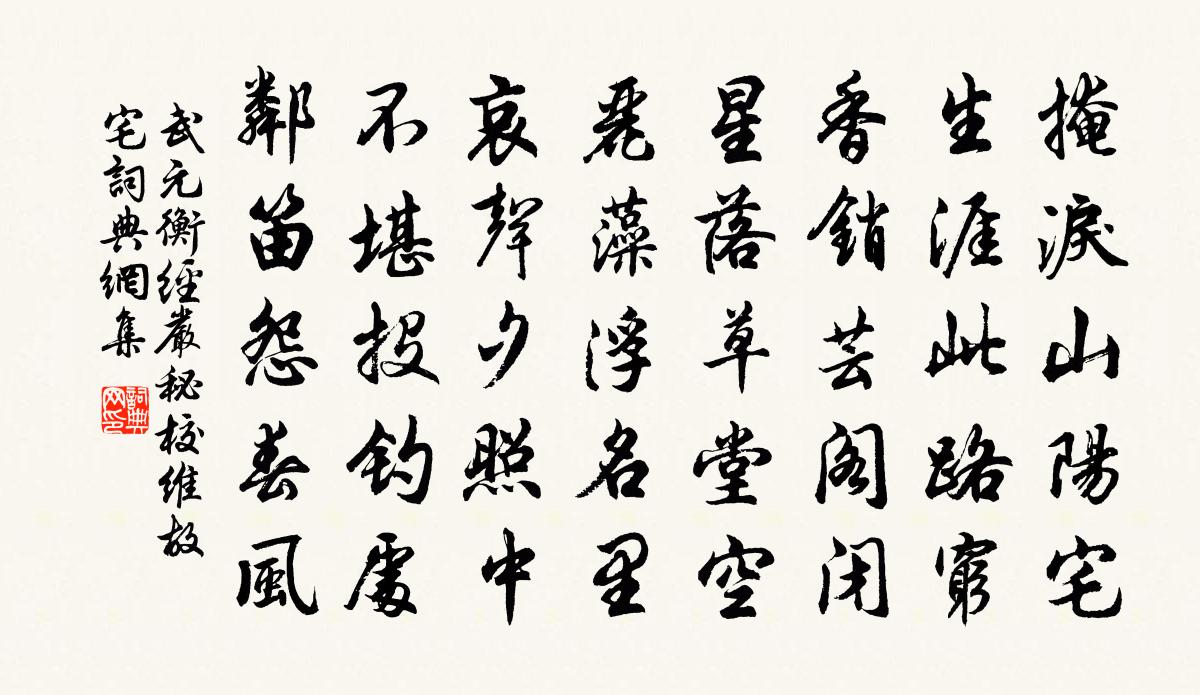 掩淚山陽宅
生涯此路窮
香銷芸閣閉
星落草堂空
麗藻浮名里
哀聲夕照中
不堪投釣處
鄰笛怨春風
武元衡經嚴秘校維故
宅詞典網集
詞典
网印